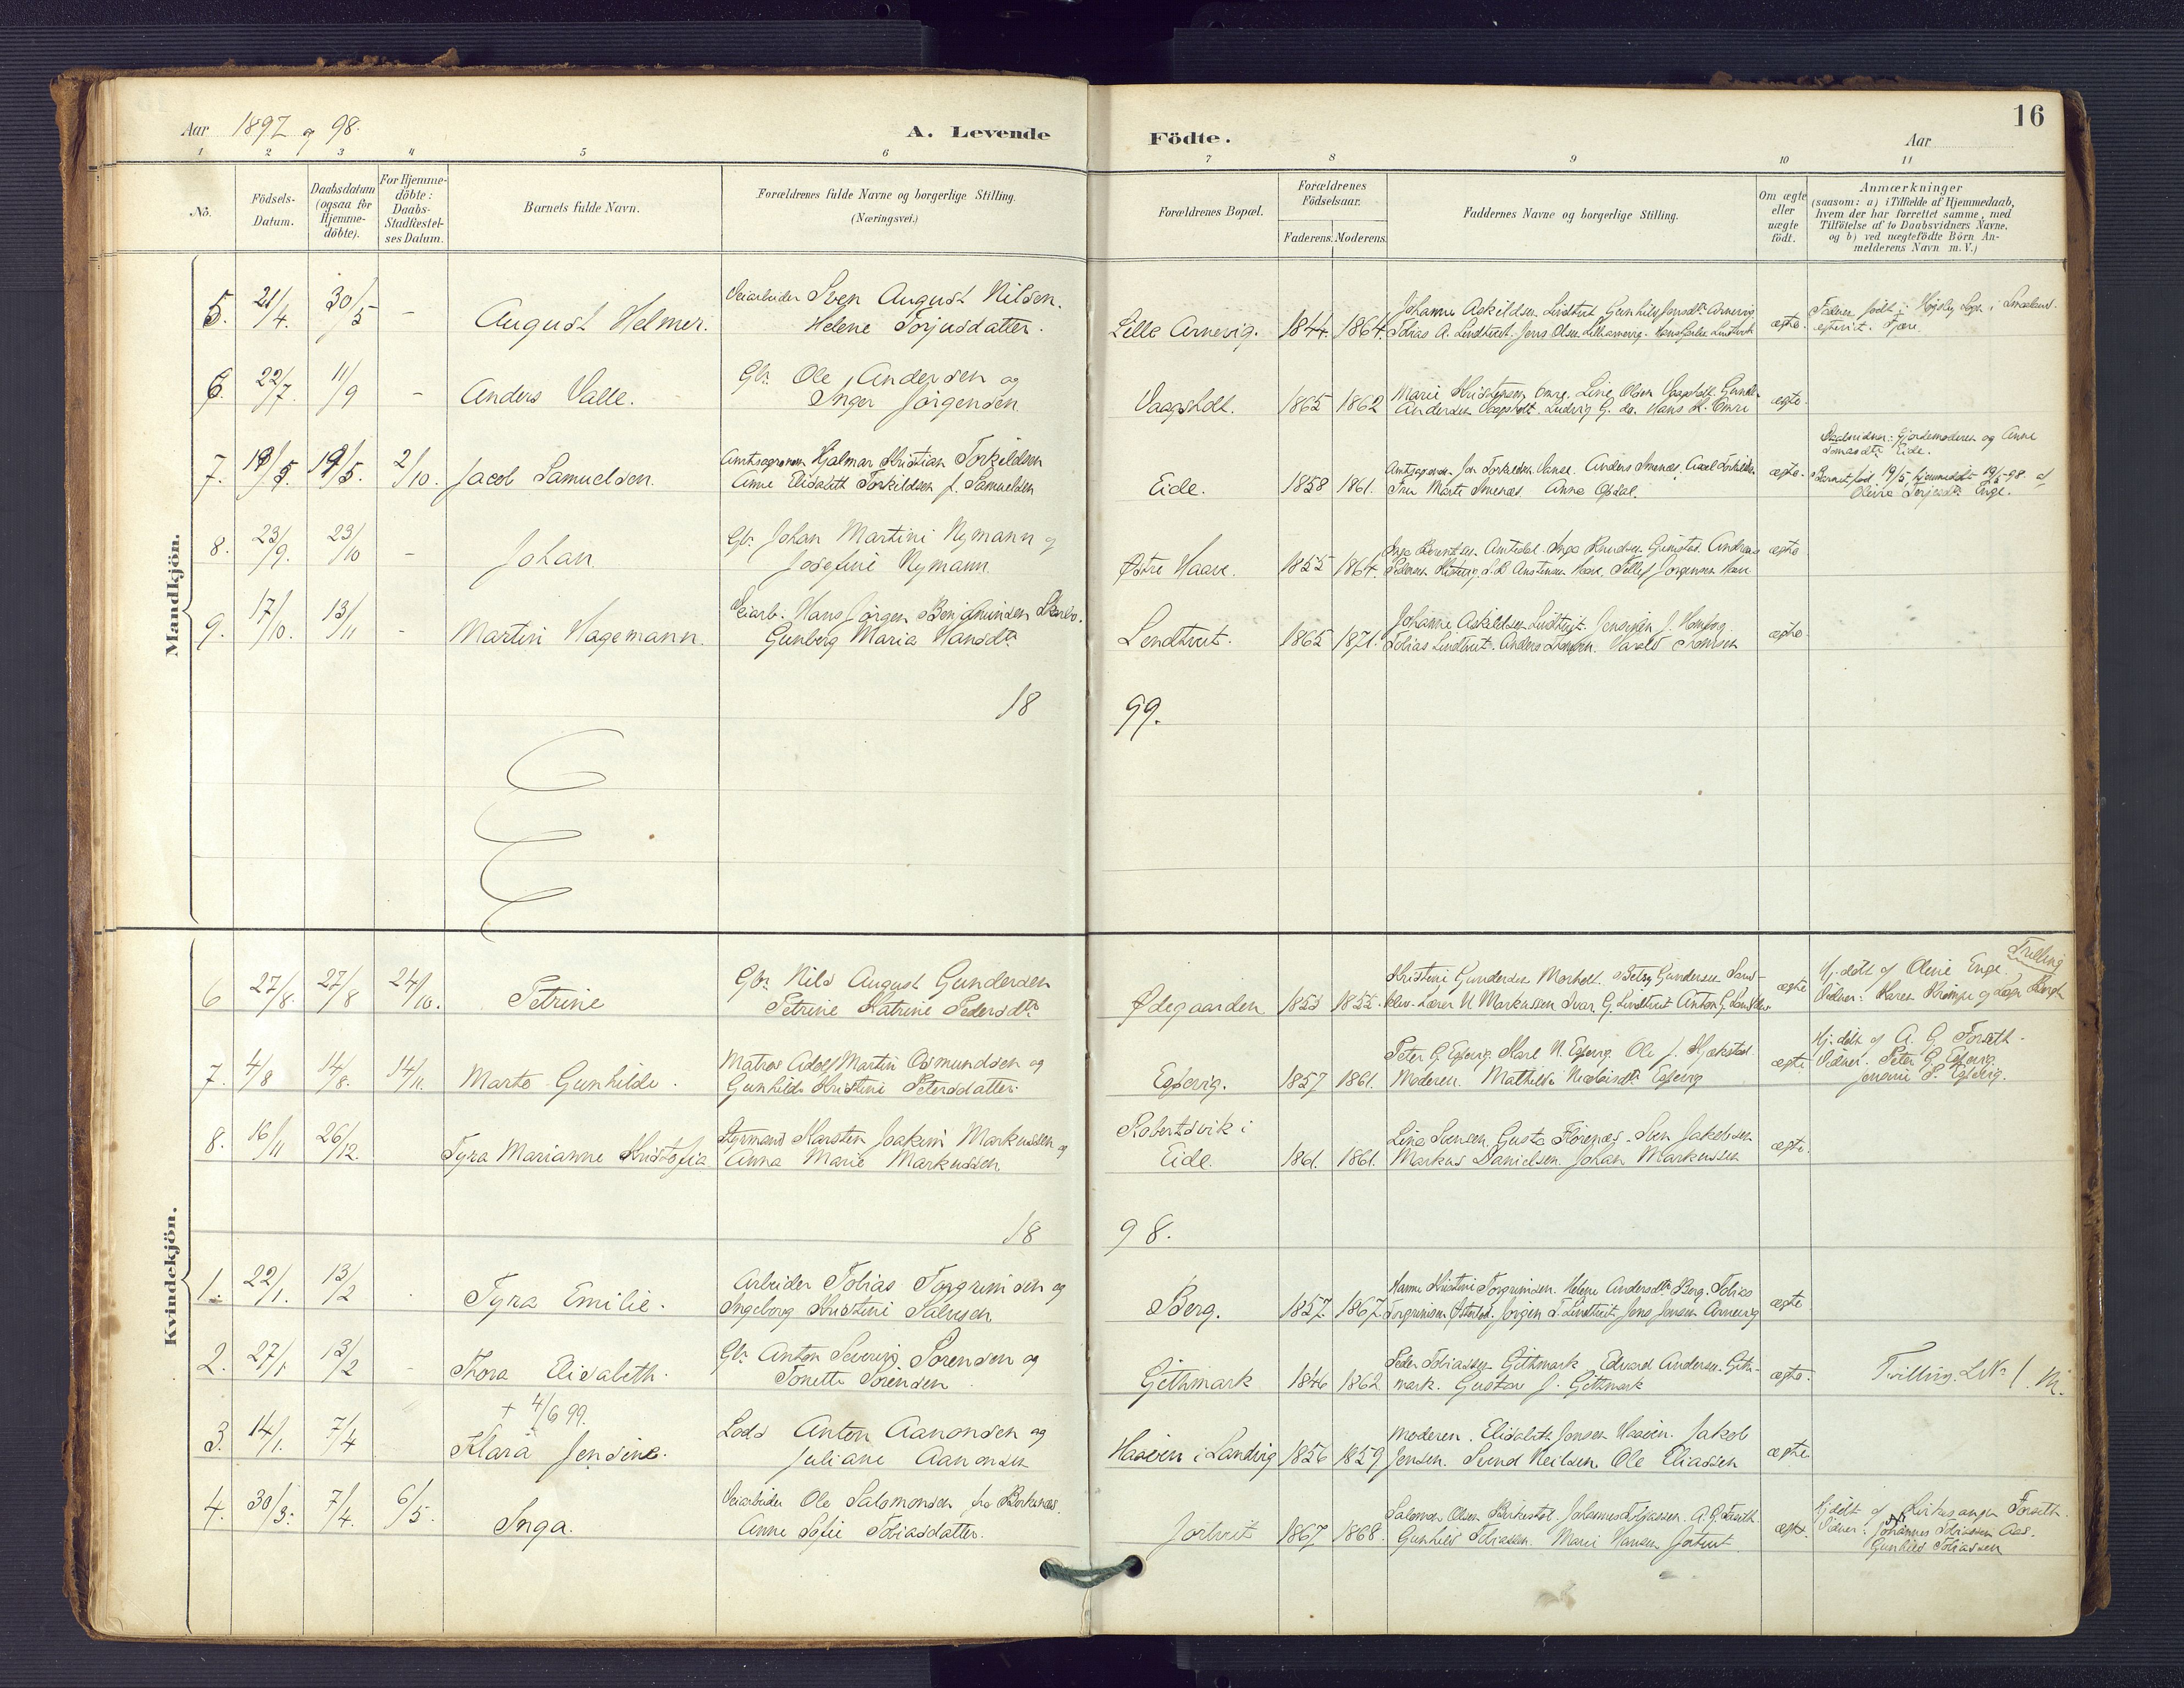 16
Aar 1897 og 98.
A. Levende Födte.
Aar
1 2 3 4 5 6 7 8 9 10 11
Nö.
Födsels-
Datum.
Daabsdatum
(ogsaa för
Hjemme-
döbte).
For Hjemme-
döbte:
Daabs-
Stadfæstel-
ses Datum.
Barnets fulde Navn.
Forældrenes fulde Navne og borgerlige Stilling.
(Næringsvei.)
Forældrenes Bopæl.
Forældrenes
Födselsaar.
Faderens. Moderens.
Faddernes Navne og borgerlige Stilling.
Om ægte
eller
uægte
födt.
Anmærkninger
(saasom: a) i Tilfælde af Hjemmedaab,
hvem der har forrettet samme, med
Tilföielse af to Daabsvidners Navne.
og b) ved uegtefödte Börn An-
melderens Navn m. V.)
Mandkjön.
5. 21/4. 30/5 - August Helmer.
Veiarbeider Sven August Nilsen.
Helene Torjusdatter.
Lille Arnevig. 1844. 1864.
Johanne Askildsen Lindtveit Gunhild Jensdtr Arnevig
Tobias A. Lindtveit. Jens Olsen Lillearnevig.
ægte.
Fader födt i Högsby Sogn i Smaaland.
6. 22/7. 11/9 - Anders Valle.
Gbr. Ole Andersen og
Inger Jörgensen
Vaagsholt. 1865 1862
Marie Kristensen Omre, Line Olsen Vaagsholt. Gunder
Andersen Vaagsholt. Ludvig G. do. Hans K. Omre
ægte.
7. 19/5. 19/5. 2/10. Jacob Samuelsen.
Amtsagronom Hjalmar Kristian Torkildsen
Anne Elisabeth Torkildsen f. Samuelsen
Eide. 1858 1861.
Fru Marte Smenæs. Anna Opsal.
ægte.
Daabsvidner: Gjordemoderen og Anne
Tomasdtr Eide.
Barnet föd. 19/5, hjemmedöbt 19/5-98 af
Oline Terjesdtr Enge.
8. 23/9. 23/10 - Johan
Gbr. Johan Martini Nymann og
Josefine Nymann.
Østre Haave. 1855 1864.
Inga Knudsen Grimstad. Andreas
Pedersen S.B Austensen Haave, Tellef Jörgensen Haave
ægte
9. 17/10. 13/11 - Martin Hagemann.
Veiarb. Hans Jörgen Benjaminsen
Gunborg Maria Hansdtr
Lendtveit. 1865 1871.
Johanne Askildsen Lindtveit.
Tobias Lindtveit. Anders Harald Tomsen
ægte
18 99.
Kvindekjön.
6 27/8. 27/8 24/10. Petrine
Gbr. Nils August Gundersen
Petrine Katrine Pedersdtr
Ødegaarden 1853 1855.
Kristine Gundersen Morholt. Betzy Gundersen
Lærer N Markussen Ivar G. Lindtveit Anton G.
ægte
Trilling
Hj. döbt af Oline Enge.
Vidner: Karen og Læge Bergh
7. 4/8 14/8. 14/11. Marte Gunhilde.
Matros Adolf Martin Osmundsen og
Gunhilde Kristine Petersdatter.
Egsevig. 1857 1861.
Peter G. Egsevig. Karl N. Egsevig. Ole J.
Moderen. Mathilde Egsevig
ægte
Hj. döbt af A. G Forseth.
Vidner. Peter G Egsevig.
Jenine P. Egsevig.
8. 16/11 26/12. Tyra Marianne Kristofia
Styrmand Karsten Joakim Markussen og
Anna Marie Markussen
Robertsvik i
Eide. 1861. 1861.
Line Svensen. Gusta Florenæs. Sven Jakobsen
Markus Danielsen. Johan Markussen
ægte.
18 98.
1. 22/1. 13/2 . Tyra Emilie.
Arbeider Tobias Torgrimsen og
Ingeborg Kristine Salvesen
Berg. 1857. 1867.
Hanne Kristine Torgrimsen. Helene Andersdtr Berg. Tobias
Torgrimsen Jörgen T. Lindtveit Jens Jensen Arnevig
ægte
2. 27/1 13/2 - Thora Elisabeth.
Gbr. Anton Severin Sørensen og
Tonette Sørensen.
Gjethmark 1846 1862
Peder Tobiassen Githmark Edvard Andersen Gith-
mark. Gustav J. Githmark
ægte.
Tvilling. L.Nr 1. M.
+ 4/6 99.
3. 14/1. 7/4 Klara Jensine.
Lods Anton Aanonsen og
Juliane Aanonsen
Haaven i Landvig 1856 1859
Moderen. Elisabeth Jensen Haaven. Jakob
Jensen. Svend Neilsen. Ole Eliassen
ægte
4. 30/3. 7/4. 6/5. Inga.
Veiarbeider Ole Salomonsen, fra Birkenæs.
Anne Sofie Tobiasdatter.
Jortveit 1867. 1868.
Salomon Olsen Johannes Tobiassen. A. G. Forseth.
Gunhild Tobiassen. Marie Hansen Jortveit.
ægte.
Hj döbt af Kirkesanger Forseth.
Vidner: Johannes Tobiassen Aas.
Gunhild Tobiassen